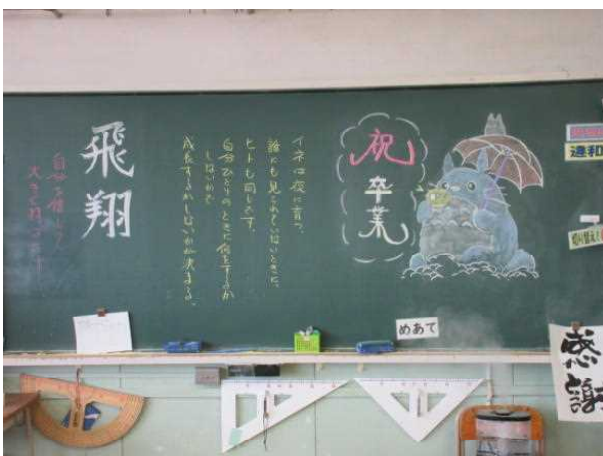 祝
卒業
イネは夜に育つ。
誰にも見られていないときに。
ヒトも同じです。
自分ひとりのときに何をするか
しないかで
成長するかしないかが決まる。
飛翔
めあて
感謝